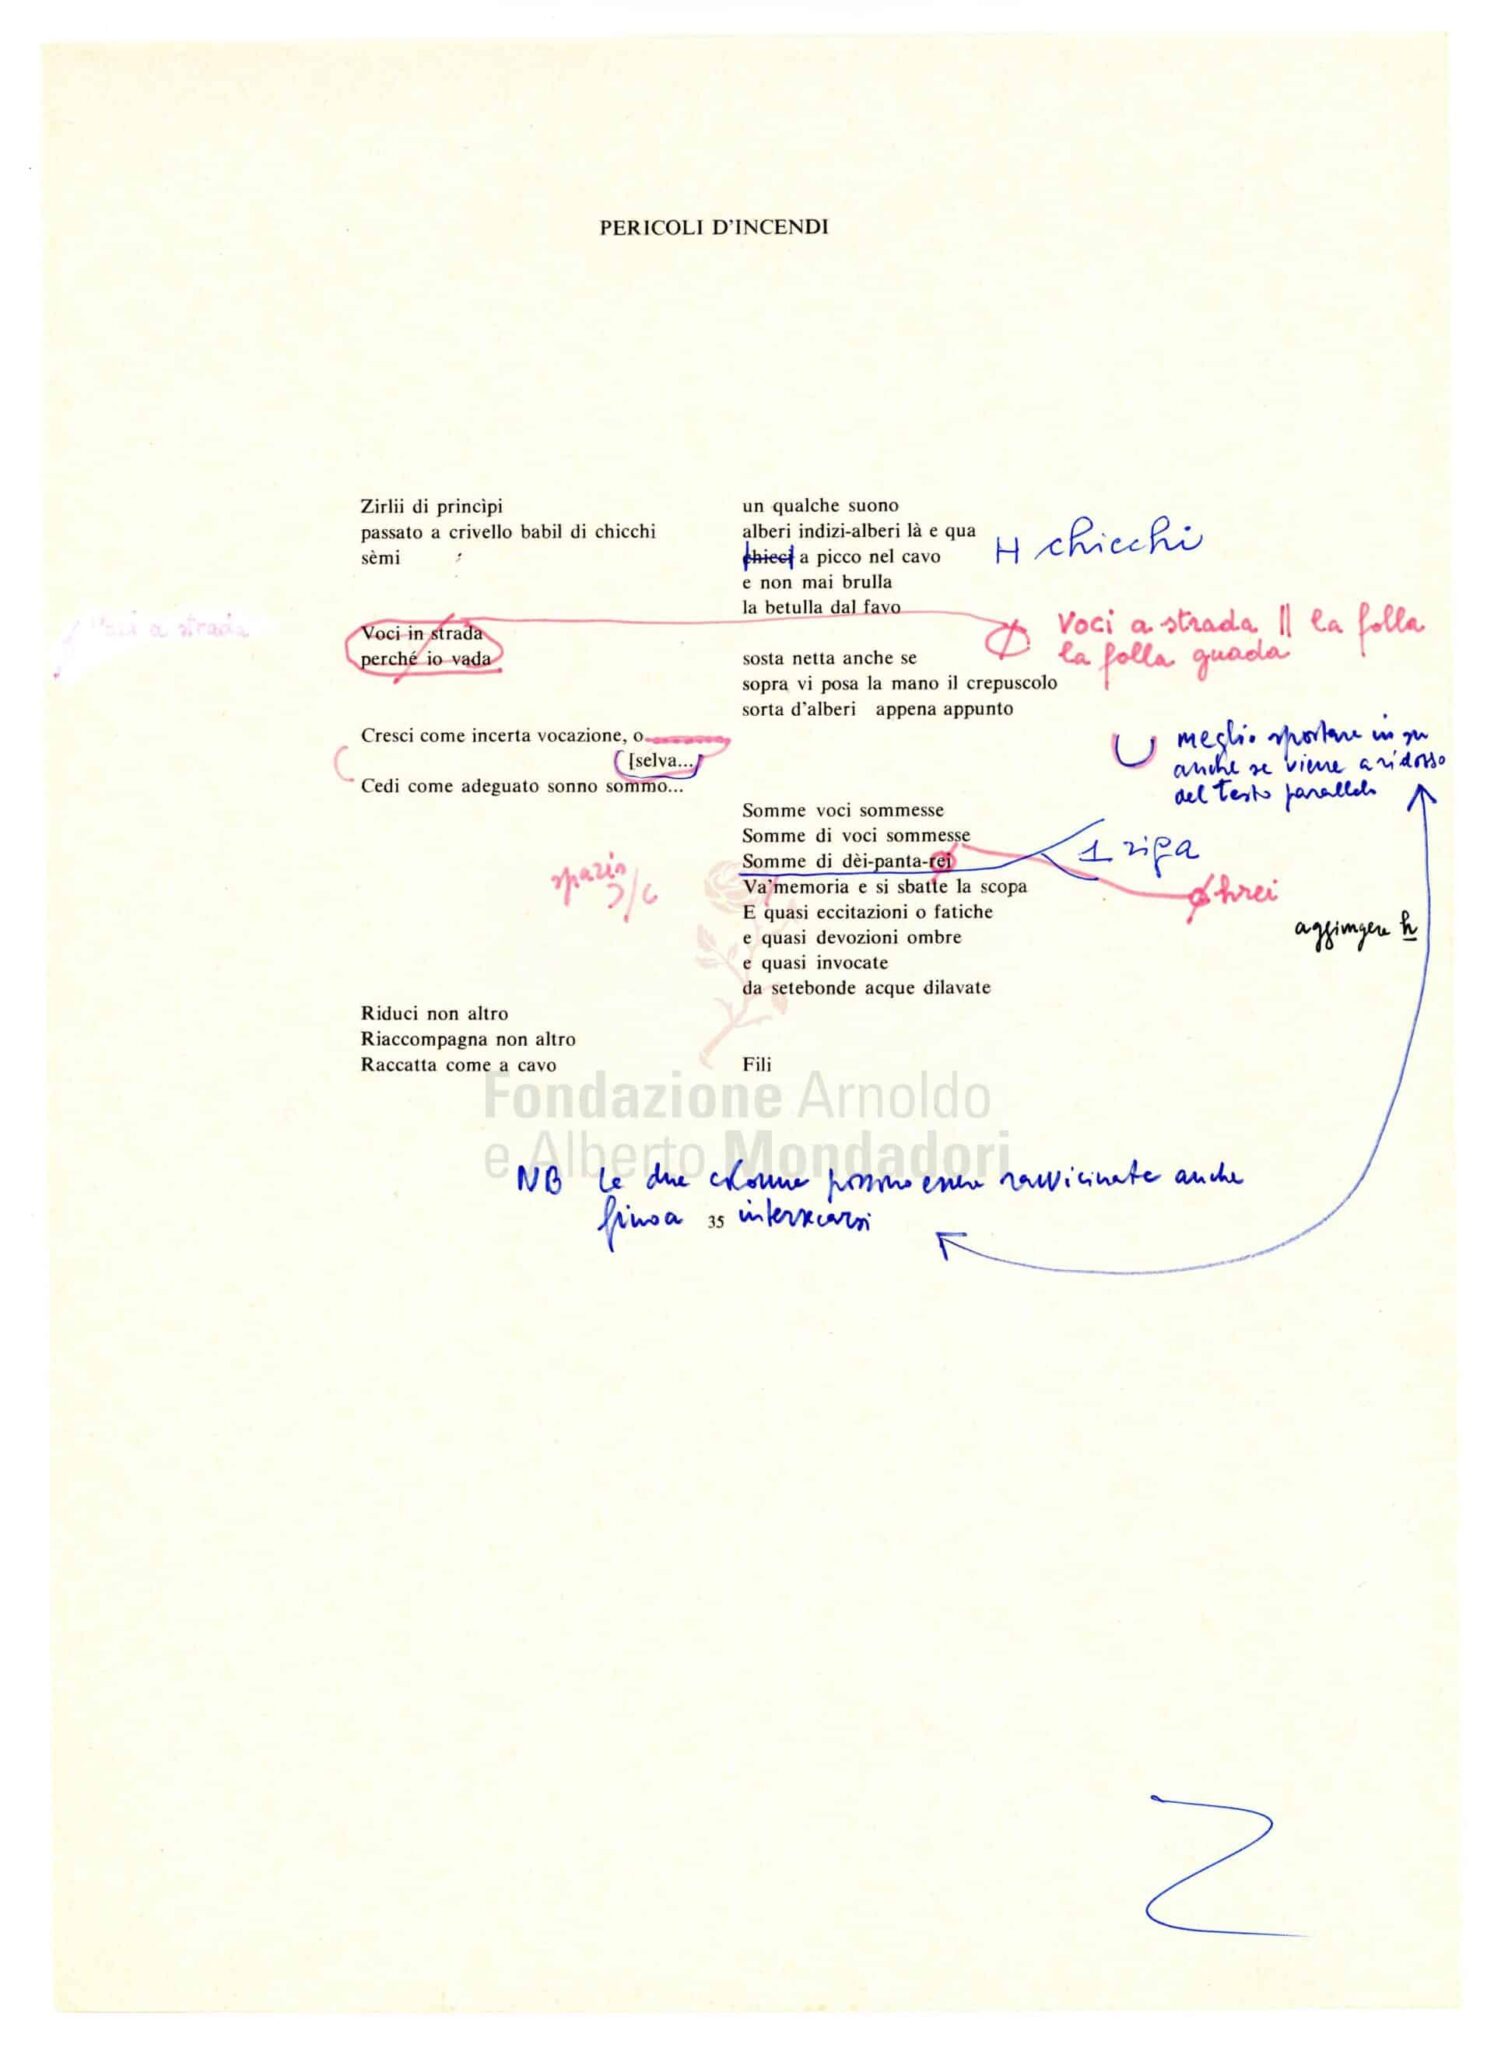 PERICOLI D'INCENDI
Zirlii di princìpi
passato a crivello babil di chicchi
sèmi
Voci in strada
perché io vada
Cresci come incerta vocazione, o
[selva...
Cedi come adeguato sonno sommo...
Riduci non altro
Riaccompagna non altro
Raccatta come a cavo
un qualche suono
alberi indizi-alberi là e qua
chicci a picco nel cavo
e non mai brulla
la betulla dal favo
sosta netta anche se
sopra vi posa la mano il crepuscolo
sorta d'alberi appena appunto
Somme voci sommesse
Somme di voci sommesse
Somme di dèi-panta-rei
Va'memoria e si sbatte la scopa
E quasi eccitazioni o fatiche
e quasi devozioni ombre
e quasi invocate
da setebonde acque dilavate
Fili
H chicchi
Voci a strada
Voci a strada || la folla
la folla guada
meglio spostare in su
anche se viene a ridosso
del testo parallelo
1 riga
spazio
hrei
aggiungere h
Fondazione Arnoldo
e Alberto Mondadori
NB Le due colonne possono essere ravvicinate anche
fino a 35 intersecarsi